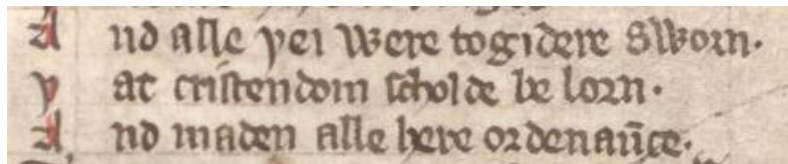 And alle þei were togidere sworn·
þat cristendom scholde be lorn·
And maden alle here ordenaūce·